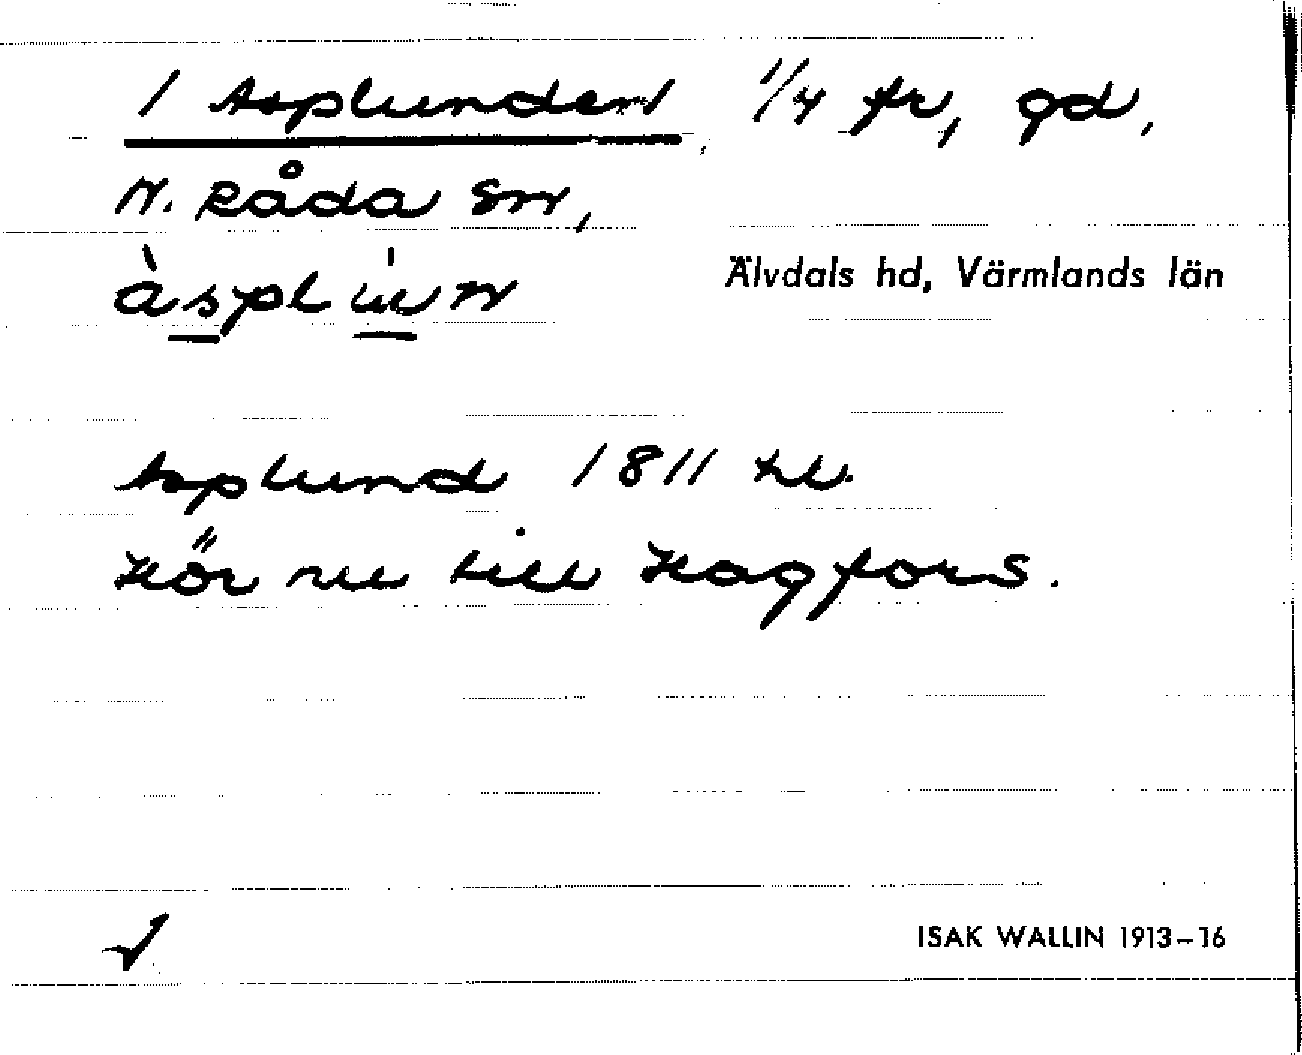 1 Asplunden, 1/4 fr, gd,
N. Råda sn,
àsplùn
Älvdals hd, Värmlands län
Asplund 1811 kb.
Hör nu till Hagfors.
ISAK WALLIN 1913–16